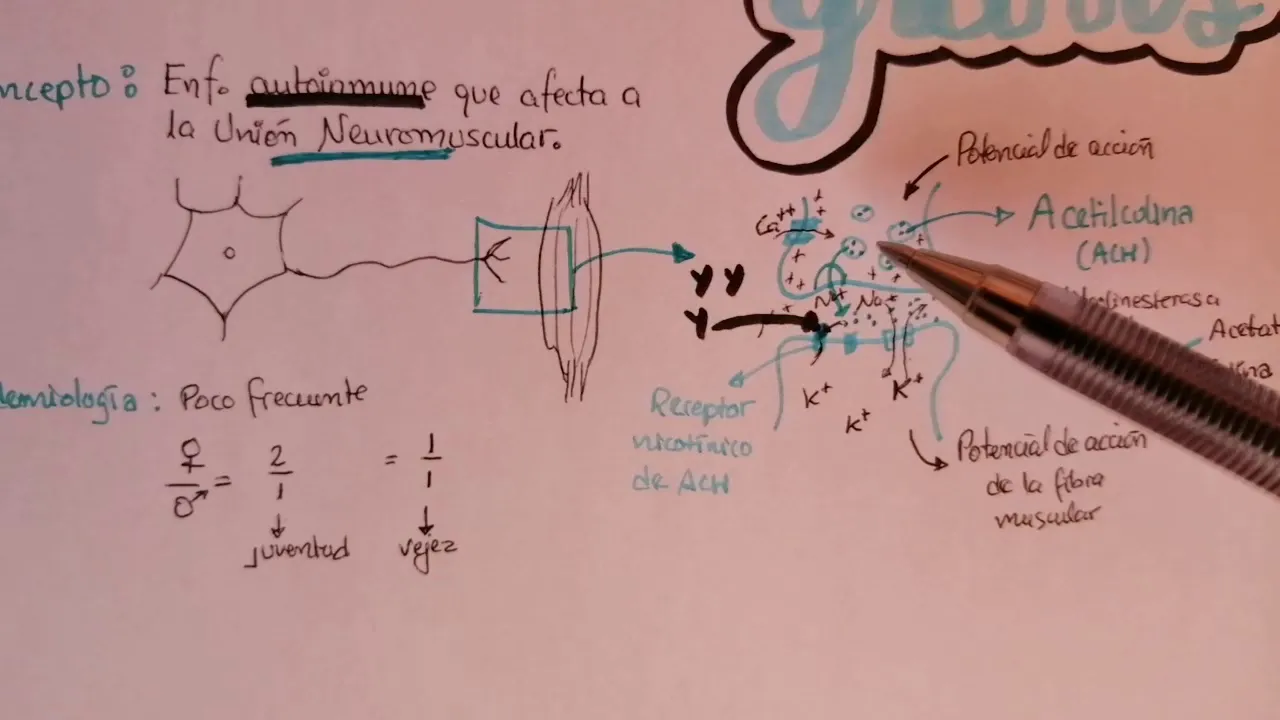 ncepto: Enf. autoinmune que afecta a
la Unión Neuromuscular.
Potencial de acción
Ca++
Acetilcolina
(ACH)
Na+ Na+
linesterasa
Acetat
ina
Y Y
Y
K+
K+
K+
Receptor
nicotínico
de ACH
Potencial de acción
de la fibra
muscular
demiología: Poco frecuente
♀/♂ = 2/1 = 1/1
juventud vejez